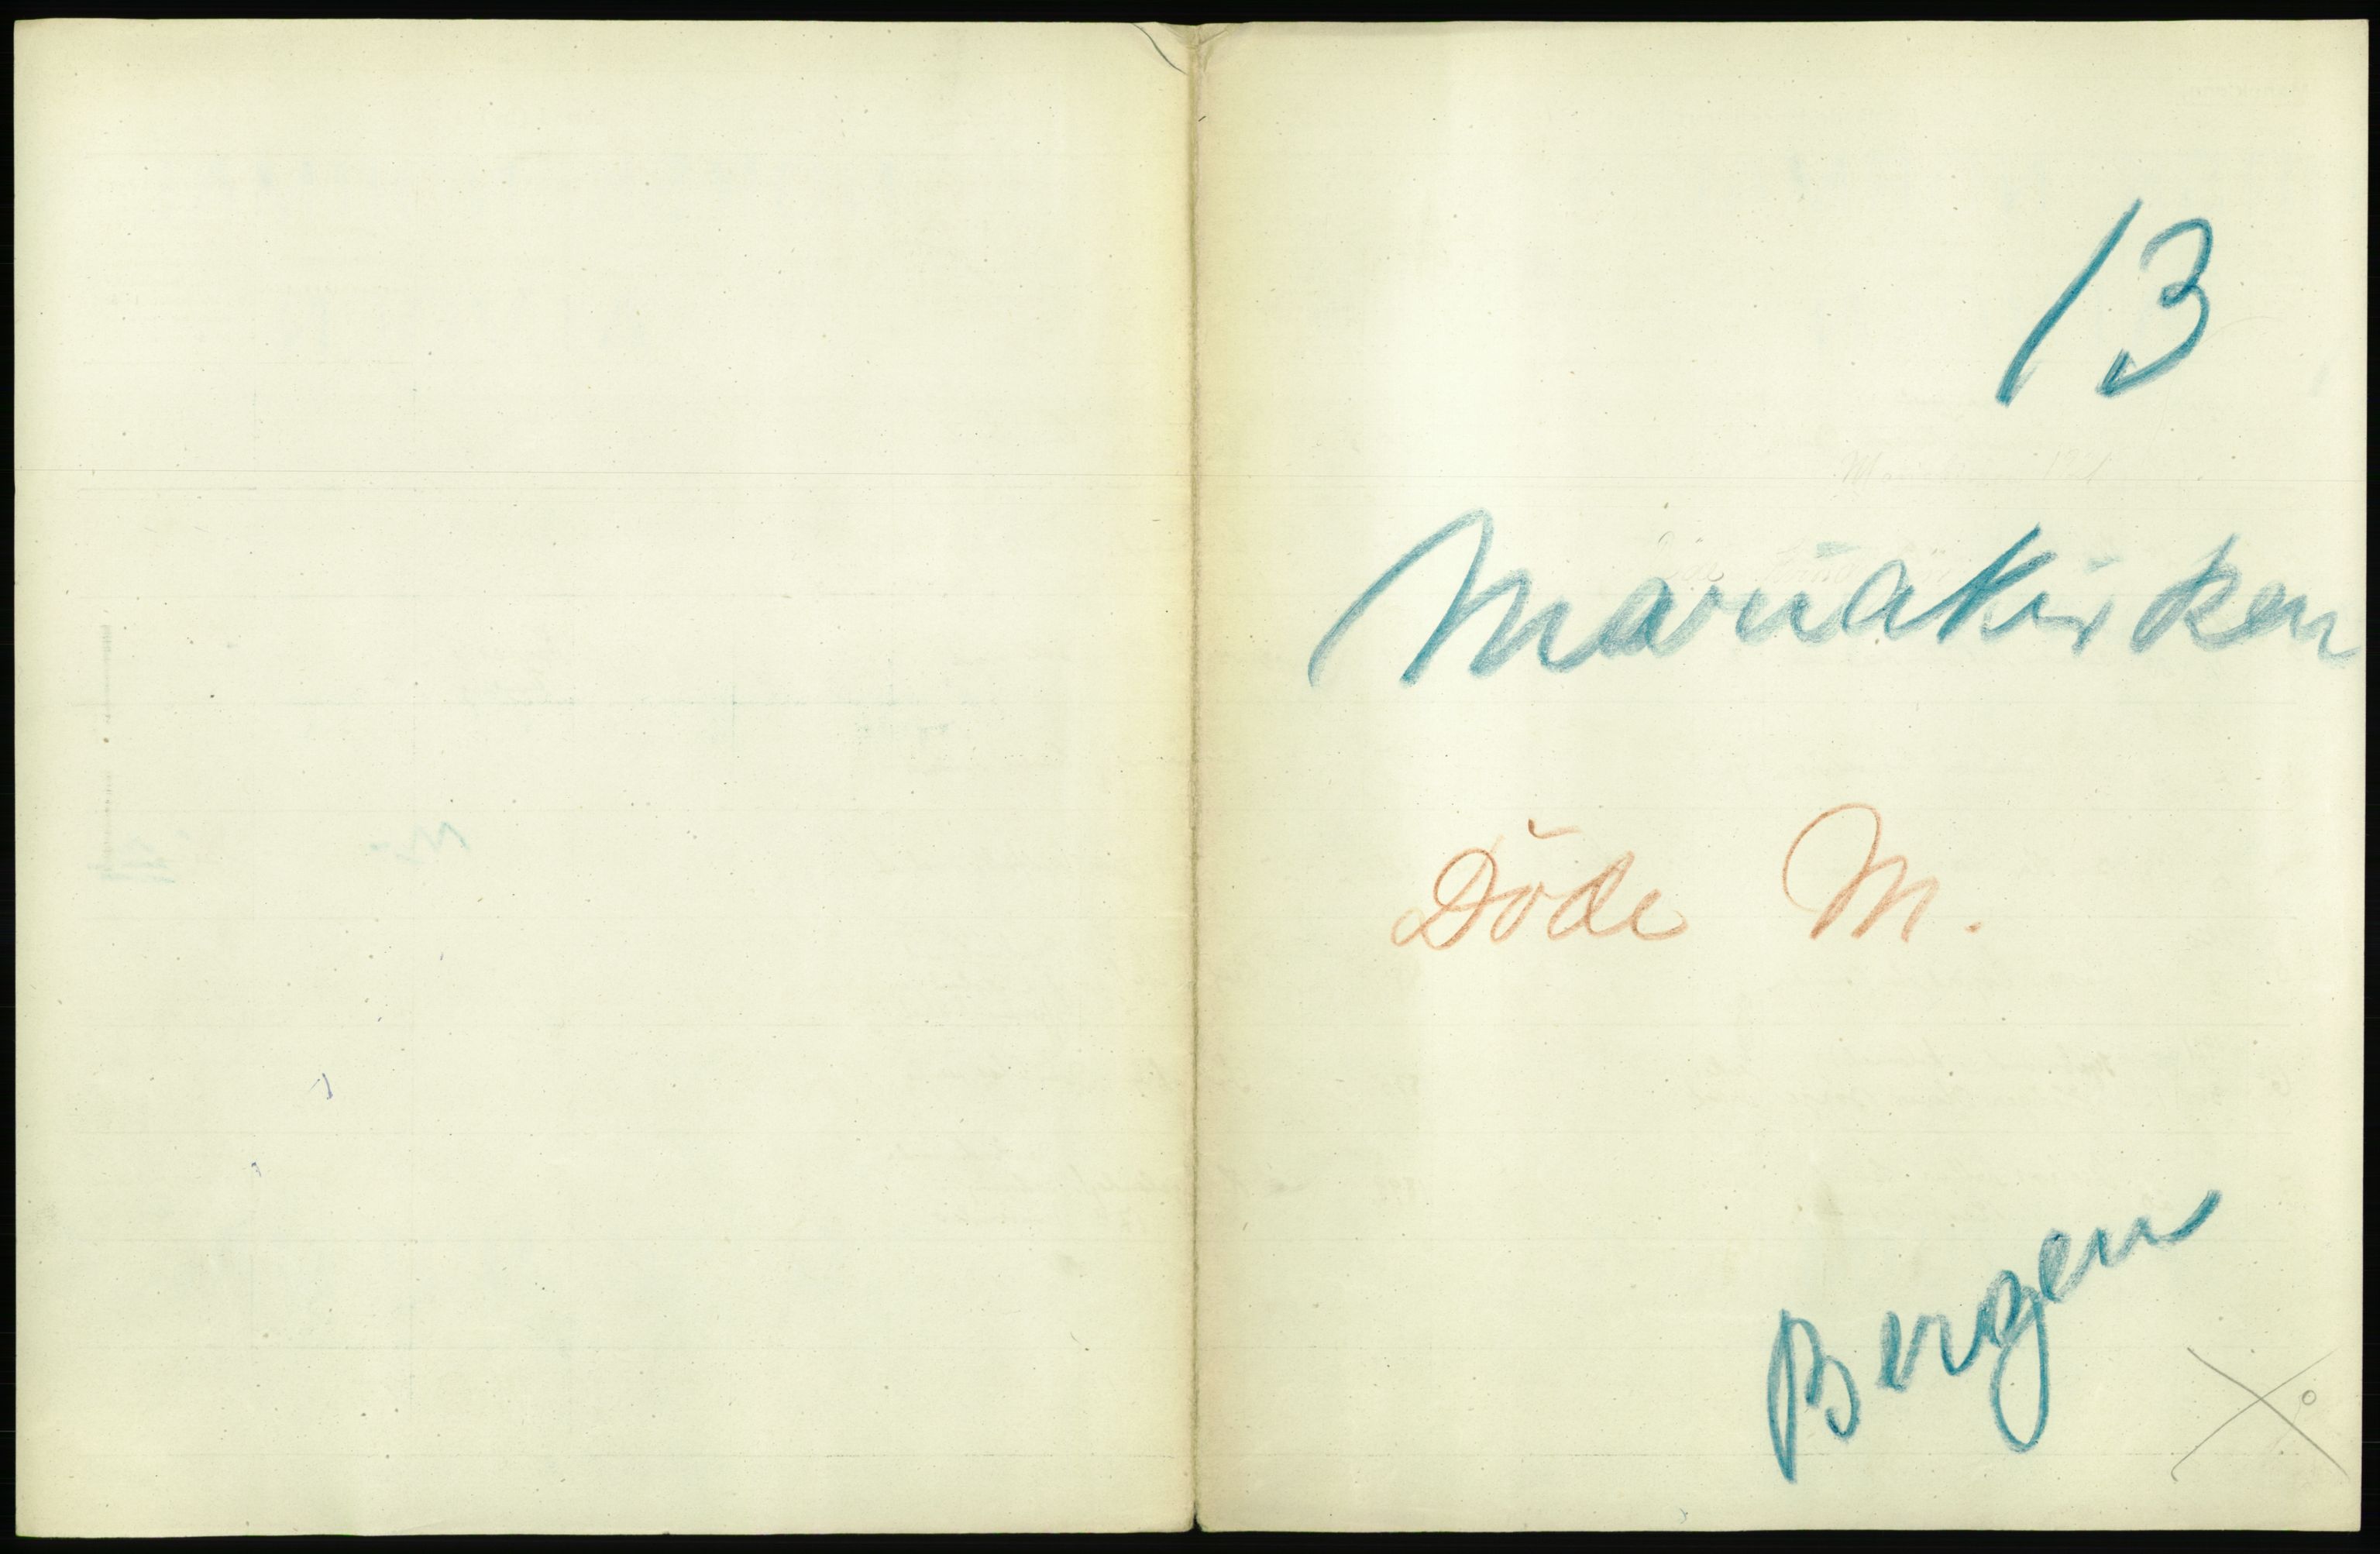 13
Mariakirken
Döde M.
Bergen